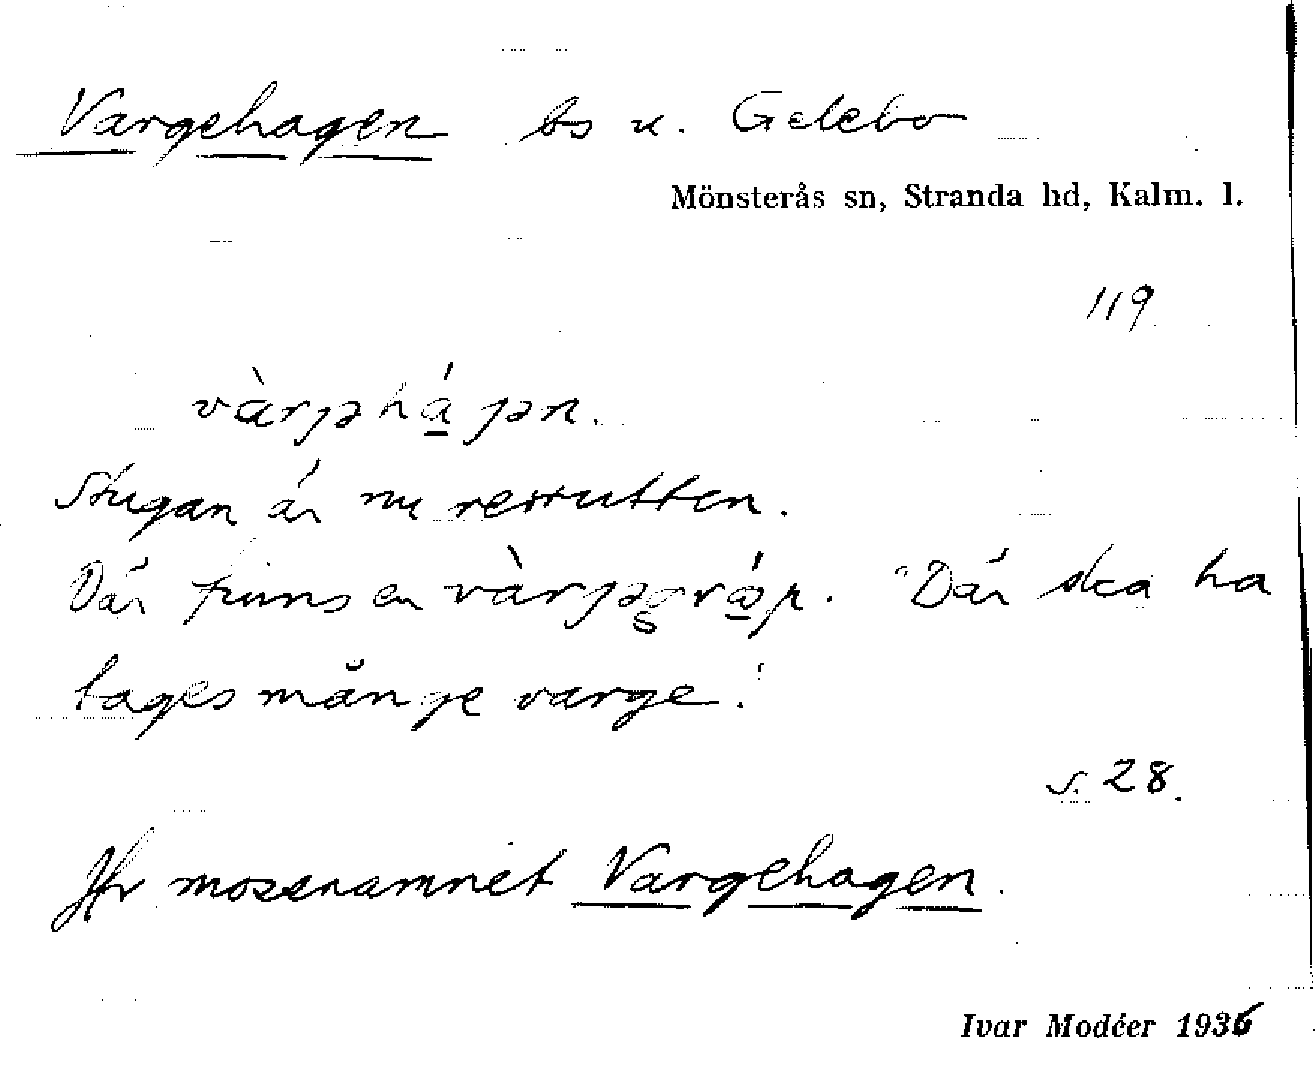 Vargehagen bs u. Gelebo
Mönsterås sn, Stranda hd, Kalm. l.
119
vàrjəhá̱jən.
Stugan är nu
Där finns en "Där ska ha
tages månge varge."
s. 28.
Jfr mossenamnet Vargehagen.
Ivar Modéer 1936